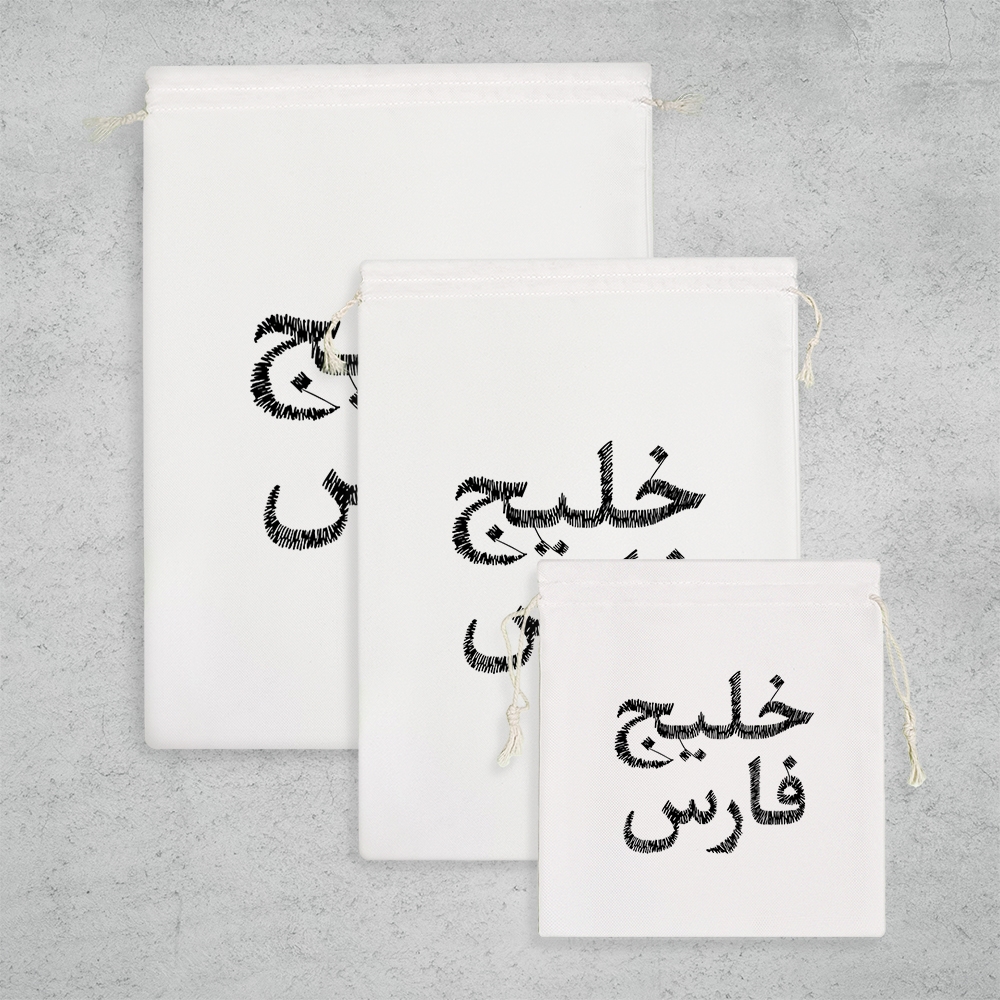 خلیج
خلیج
فارس